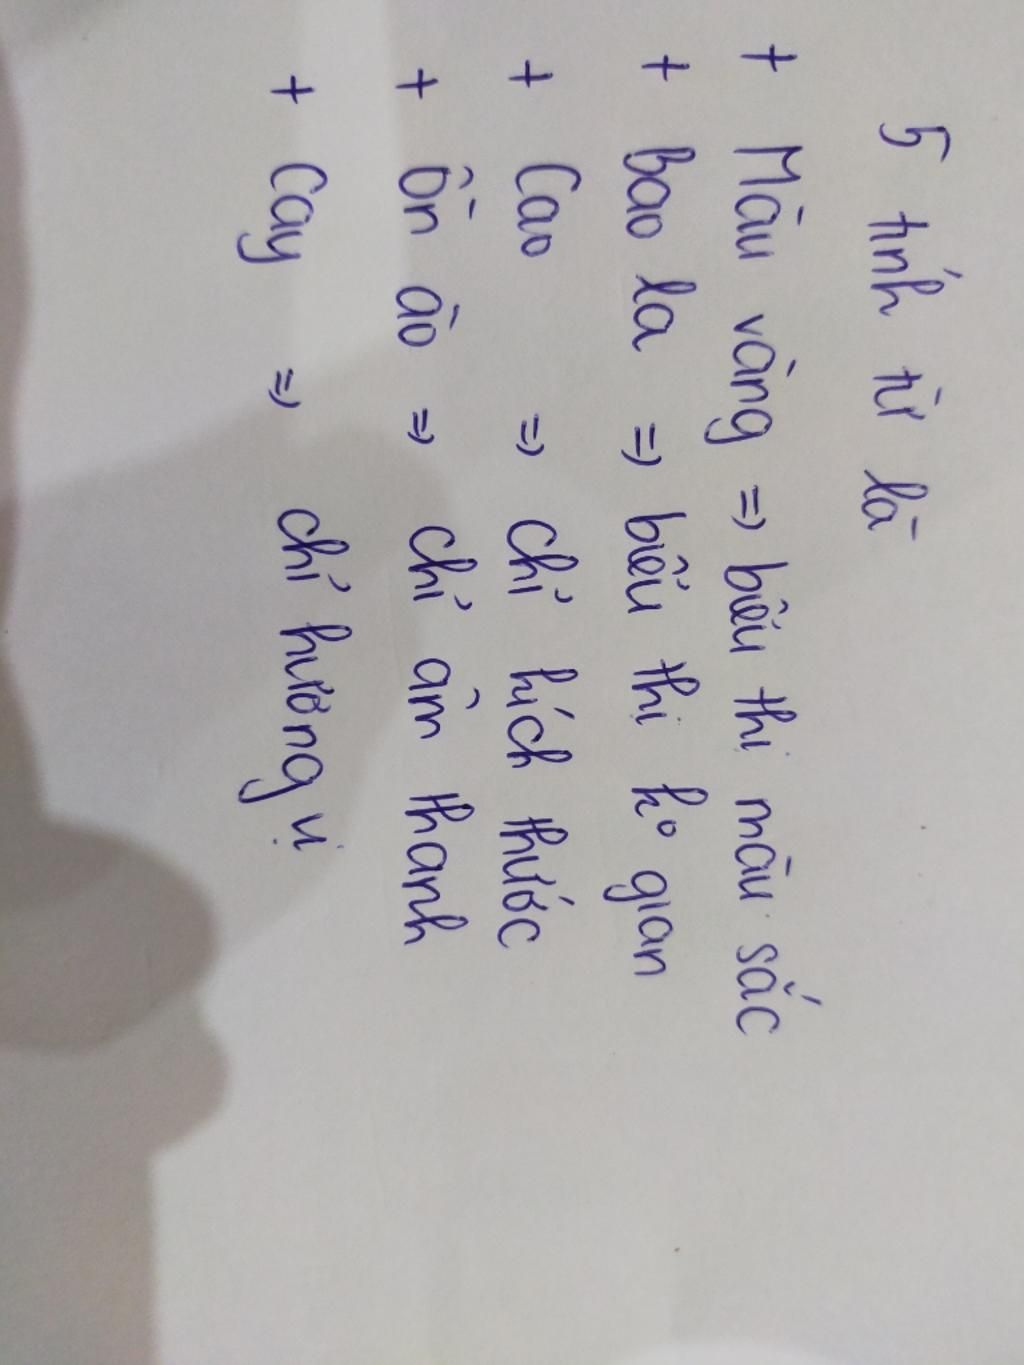 5 tính từ là
+ Màu vàng => biểu thị màu sắc
+ Bao la => biểu thị k° gian
+ Cao => chỉ kích thước
+ ồn ào => chỉ âm thanh
+ Cay => chỉ hương vị